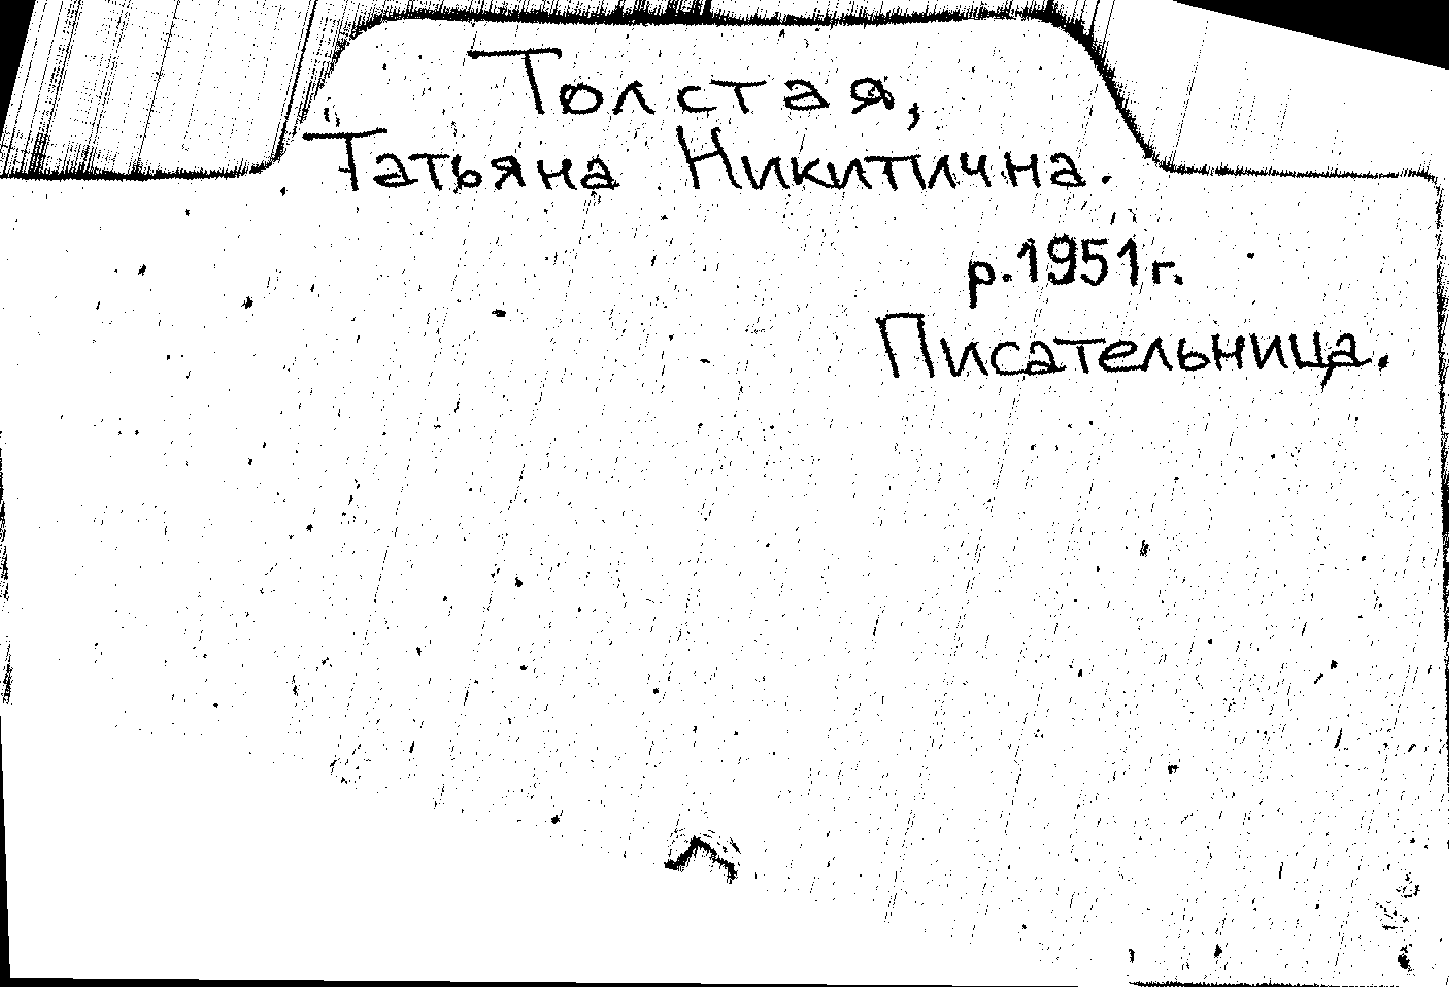 Толстая,
Татьяна Никитична.
р.1951г.
Писательница.